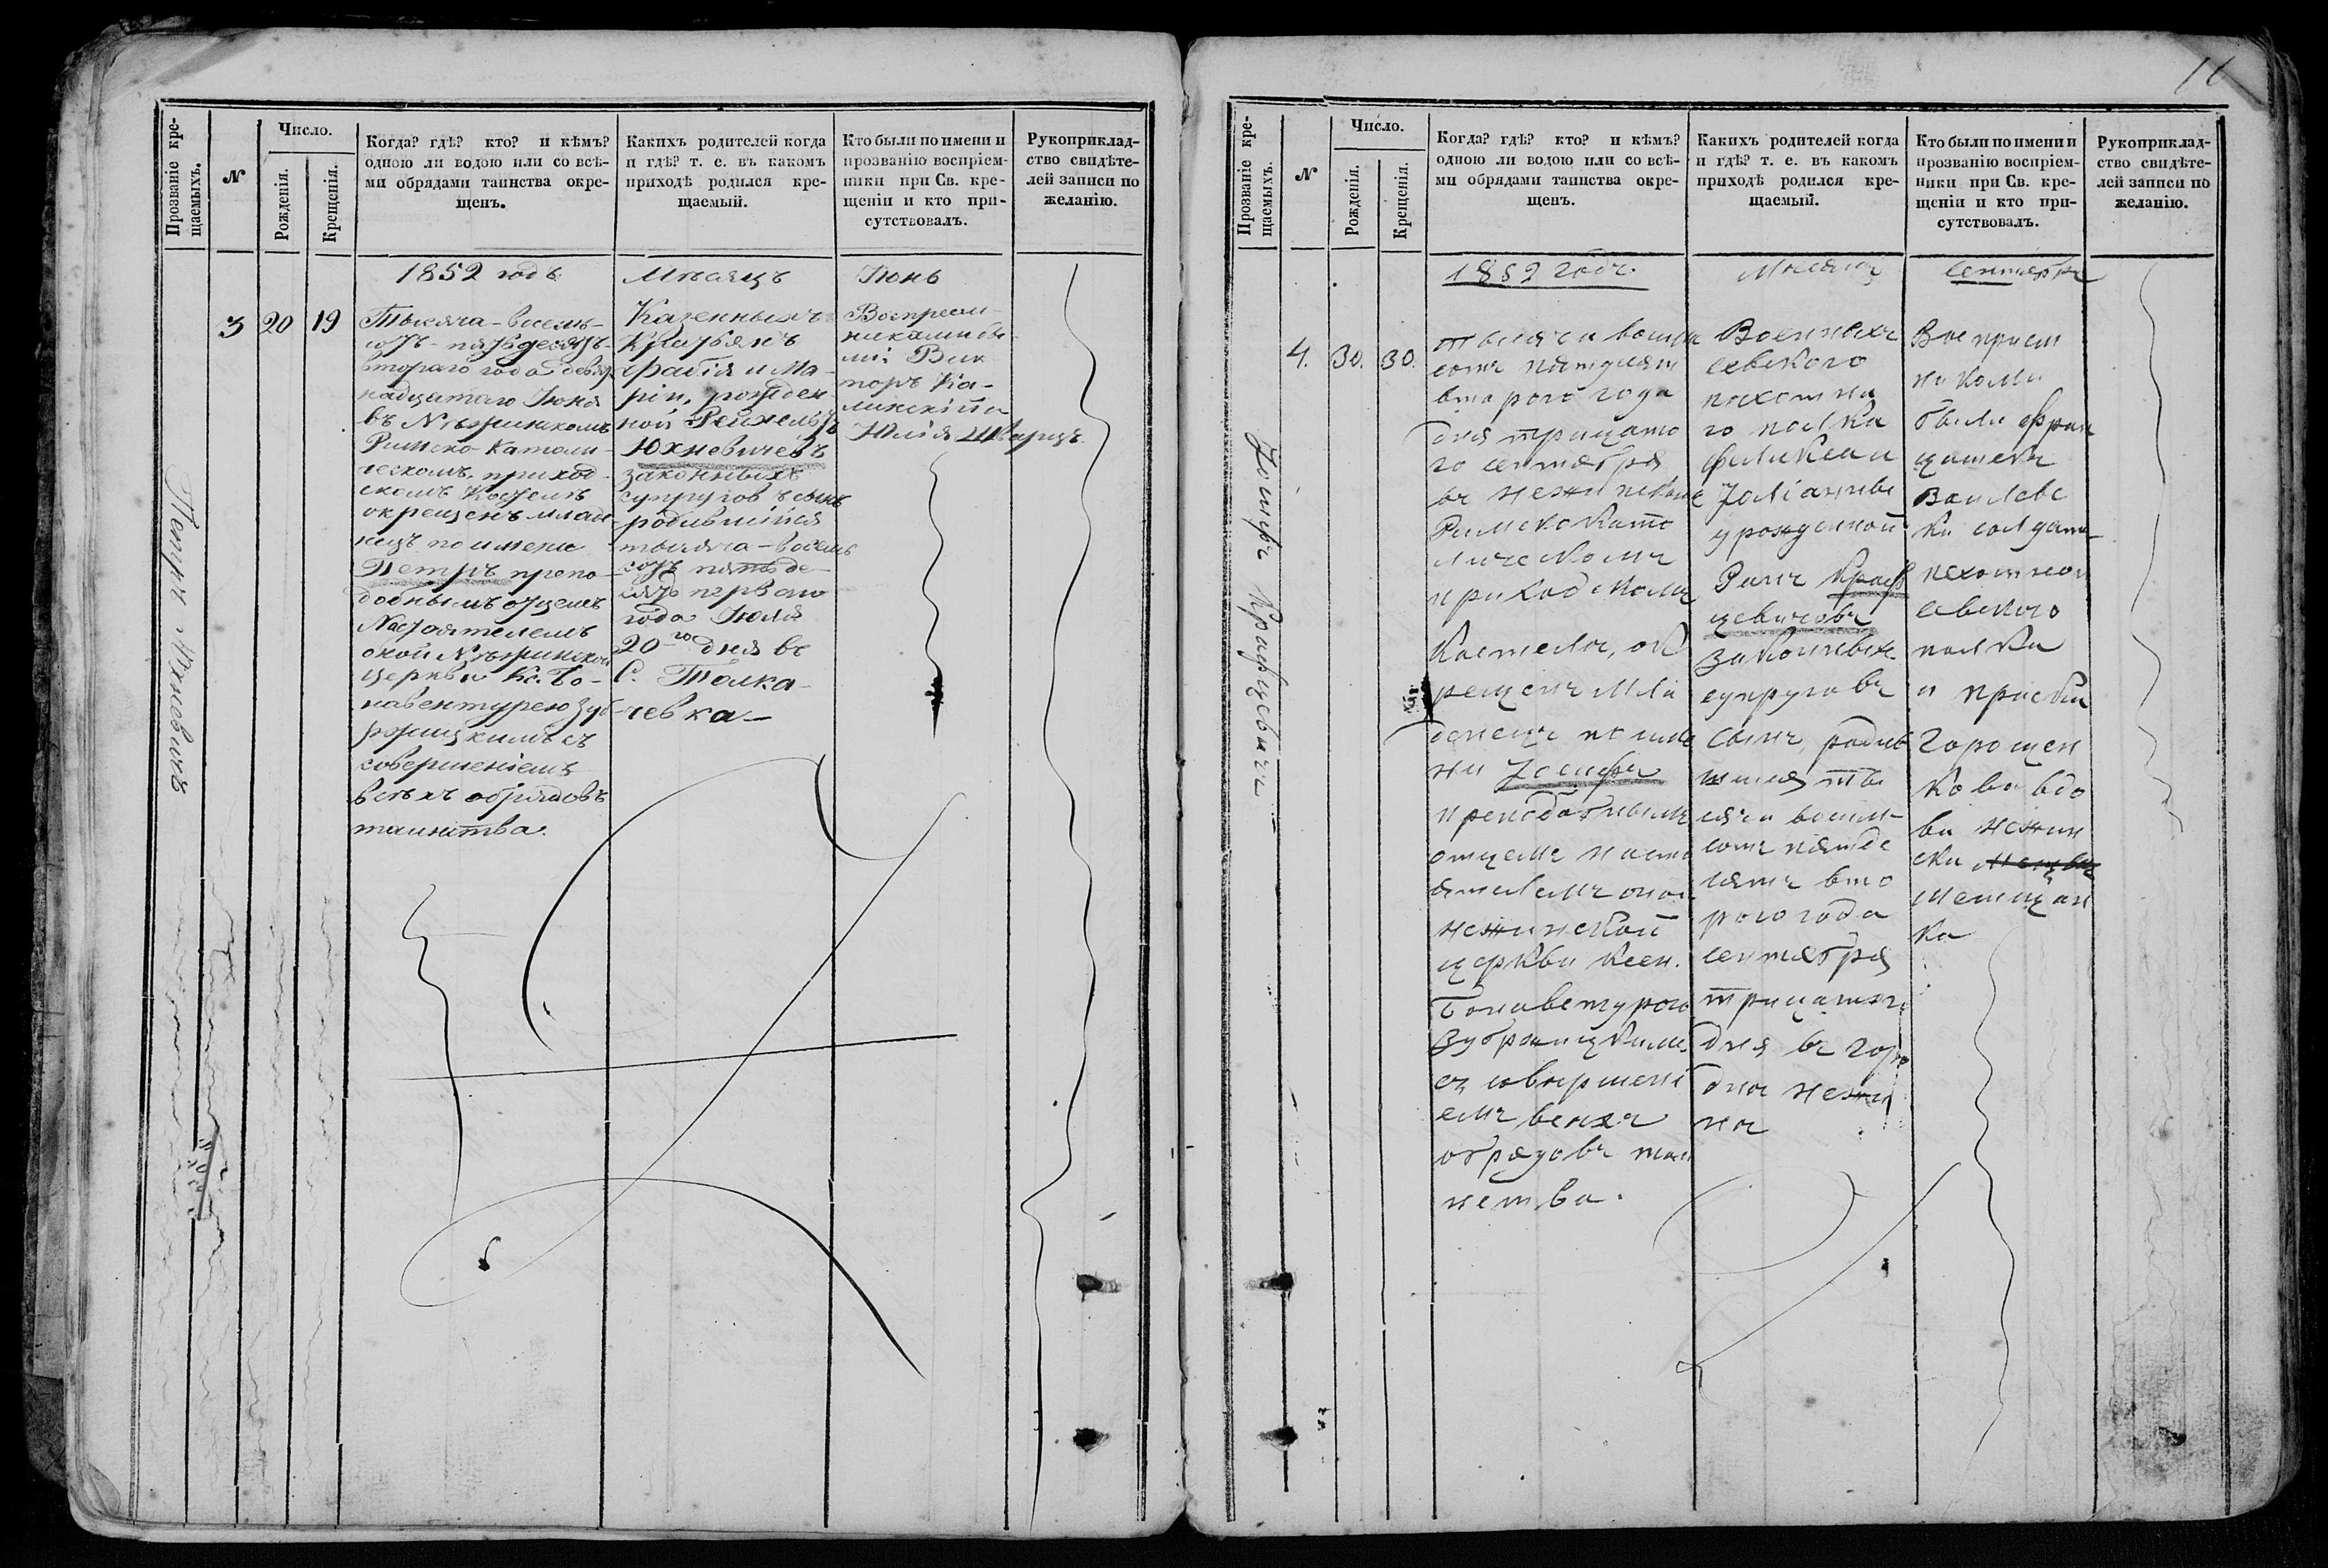 Прозваніе кре-
щаемыхъ.
N
Число.
Рожденія.
Крещенія.
Когда? гдѣ? кто? и кѣмъ?
одною ли водою или со всѣ-
ми обрядами таинства окре-
щенъ.
Какихъ родителей когда
и гдѣ? т. е. въ какомъ
приходѣ родился кре-
щаемый.
Кто были по имени и
прозванію воспріем-
ники при Св. кре-
щеніи и кто при-
сутствовалъ.
Рукоприклад-
ство свидѣте-
лей записи по
желанію.
1852 годъ
Мѣсяцъ
Іюнь
Петръ Юхневичъ
3
20
19
Тысяча-восемь-
сотъ-пятьдесятъ-
втораго года девят
надцатаго Іюня
въ Нѣжинскомъ
Римско-Католи-
ческомъ приход-
скомъ Костелѣ
окрещенъ младе-
нецъ по имени
Петръ препо-
добнымъ отцемъ
Настоятелемъ
оной Нѣжинской
церкви Кс. Бо-
навентурею Зуб-
ржицкимъ съ
совершеніемъ
всѣхъ обрядовъ
таинства.
Казенныхъ
Крестьянъ
и Ма-
ріи, рожден
ной
Юхневичевъ
законныхъ
супруговъ сынъ
родившійся
тысяча-восемь
сотъ пятьде-
сятъ перваго
года Іюля
20го дня въ
С. Толка-
чевка-
Воспреем-
никами бы
ли: Вик
торъ Ка-
линскій и
Юлія Шварцъ.
11
Прозваніе кре-
щаемыхъ.
N
Число.
Рожденія.
Крещенія.
Когда? гдѣ? кто? и кѣмъ?
одною ли водою или со всѣ-
ми обрядами таинства окре-
щенъ.
Какихъ родителей когда
и гдѣ? т. е. въ какомъ
приходѣ родился кре-
щаемый.
Кто были по имени и
прозванію воспріем-
ники при Св. кре-
щеніи и кто при-
сутствовалъ.
Рукоприклад-
ство свидѣте-
лей записи по
желанію.
1852 годъ.
Мѣсяцъ
Сентебръ
Іосифъ Крафцевичъ
4.
30.
30.
тысяча восим
сотъ пятдесят
второго года
дня трицато
го сентября
въ нежинском
Римскокато
лическомъ
приходскомъ
Костеле, ок
рещенъ мла
денецъ по име
ни Іосифъ
преподобнымъ
отцемъ насто
ятелемъ оной
нежинской
церкви ксен.
Бонаветурою
Зубржицкимъ
съ совершени
емъ всехъ
обрядовъ таи
нства.
Военныхъ
севского
пехотна
го полка
Феликса и
Юліанны
урожденной
Крафцевичовъ
законныхъ
супруговъ
сынъ, родив
шийся ты
сяча восим
сотъ пятьде
сятъ вто
рого года
сентября
трицатого
дня въ горо
де нежи
не
Восприем
никами
были Фран
цишекъ
Василевс
ки солдатъ
пехотной
севского
полка
и
Горошен
кова вдо
ва нежин
ска
мещан
ка